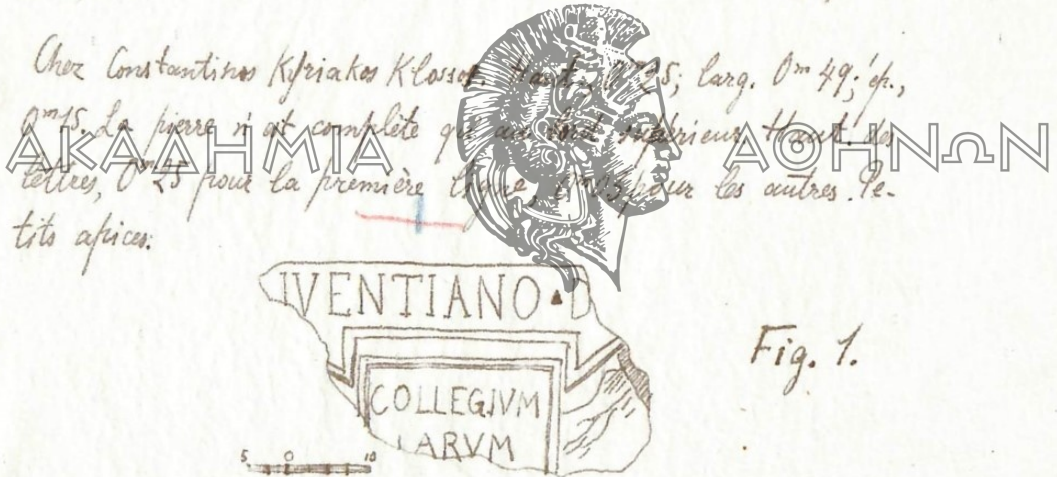 Chez Constantinos Kyriakos Klossos. Haut., 0m 25; larg. 0m 49; ép.,
0m 15. La pierre n'est complète qu'au bord supérieur. Haut. des
lettres, 0m 25 pour la première ligne, 0m 03 pour les autres. Pe-
tits apices.
ΑΚΑΔΗΜΙΑ ΑΘΗΝΩΝ
IVENTIANO · D
COLLEGIVM
LARVM
Fig. 1.
5 0 10